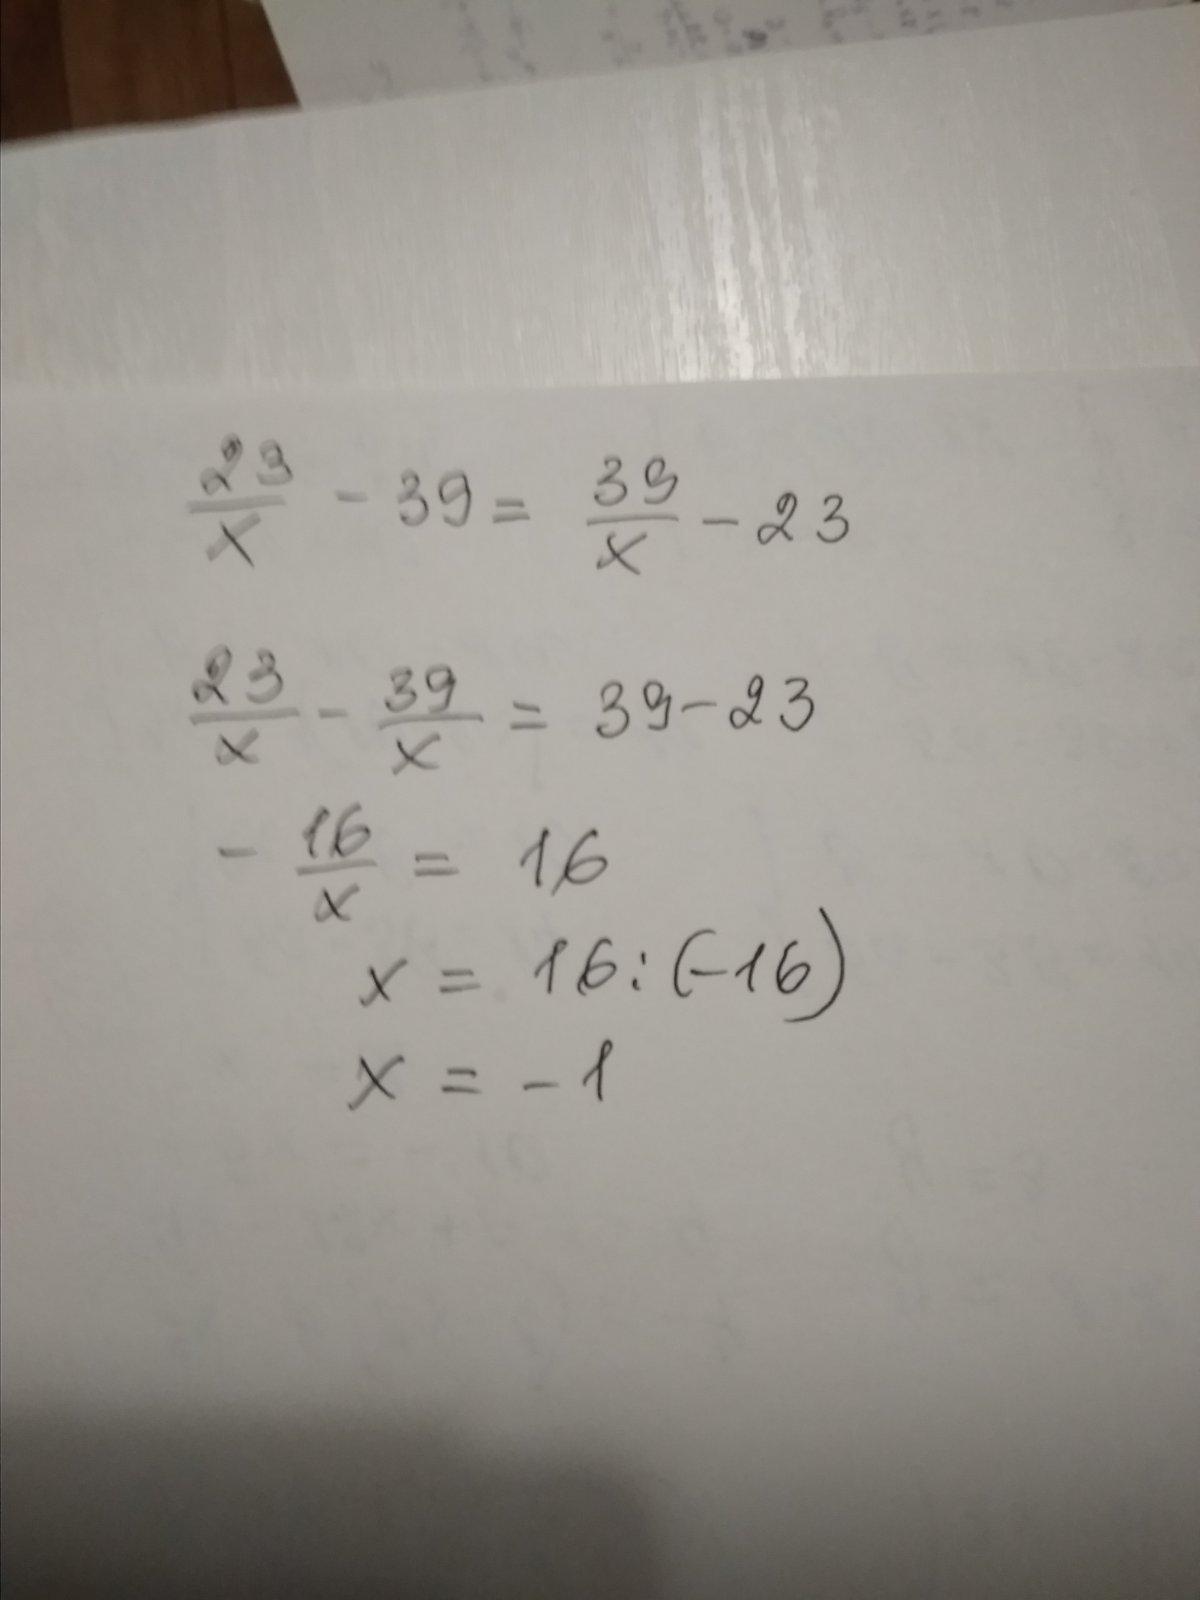 23/x - 39 = 39/x - 23
23/x - 39/x = 39 - 23
- 16/x = 16
x = 16 : (-16)
x = -1